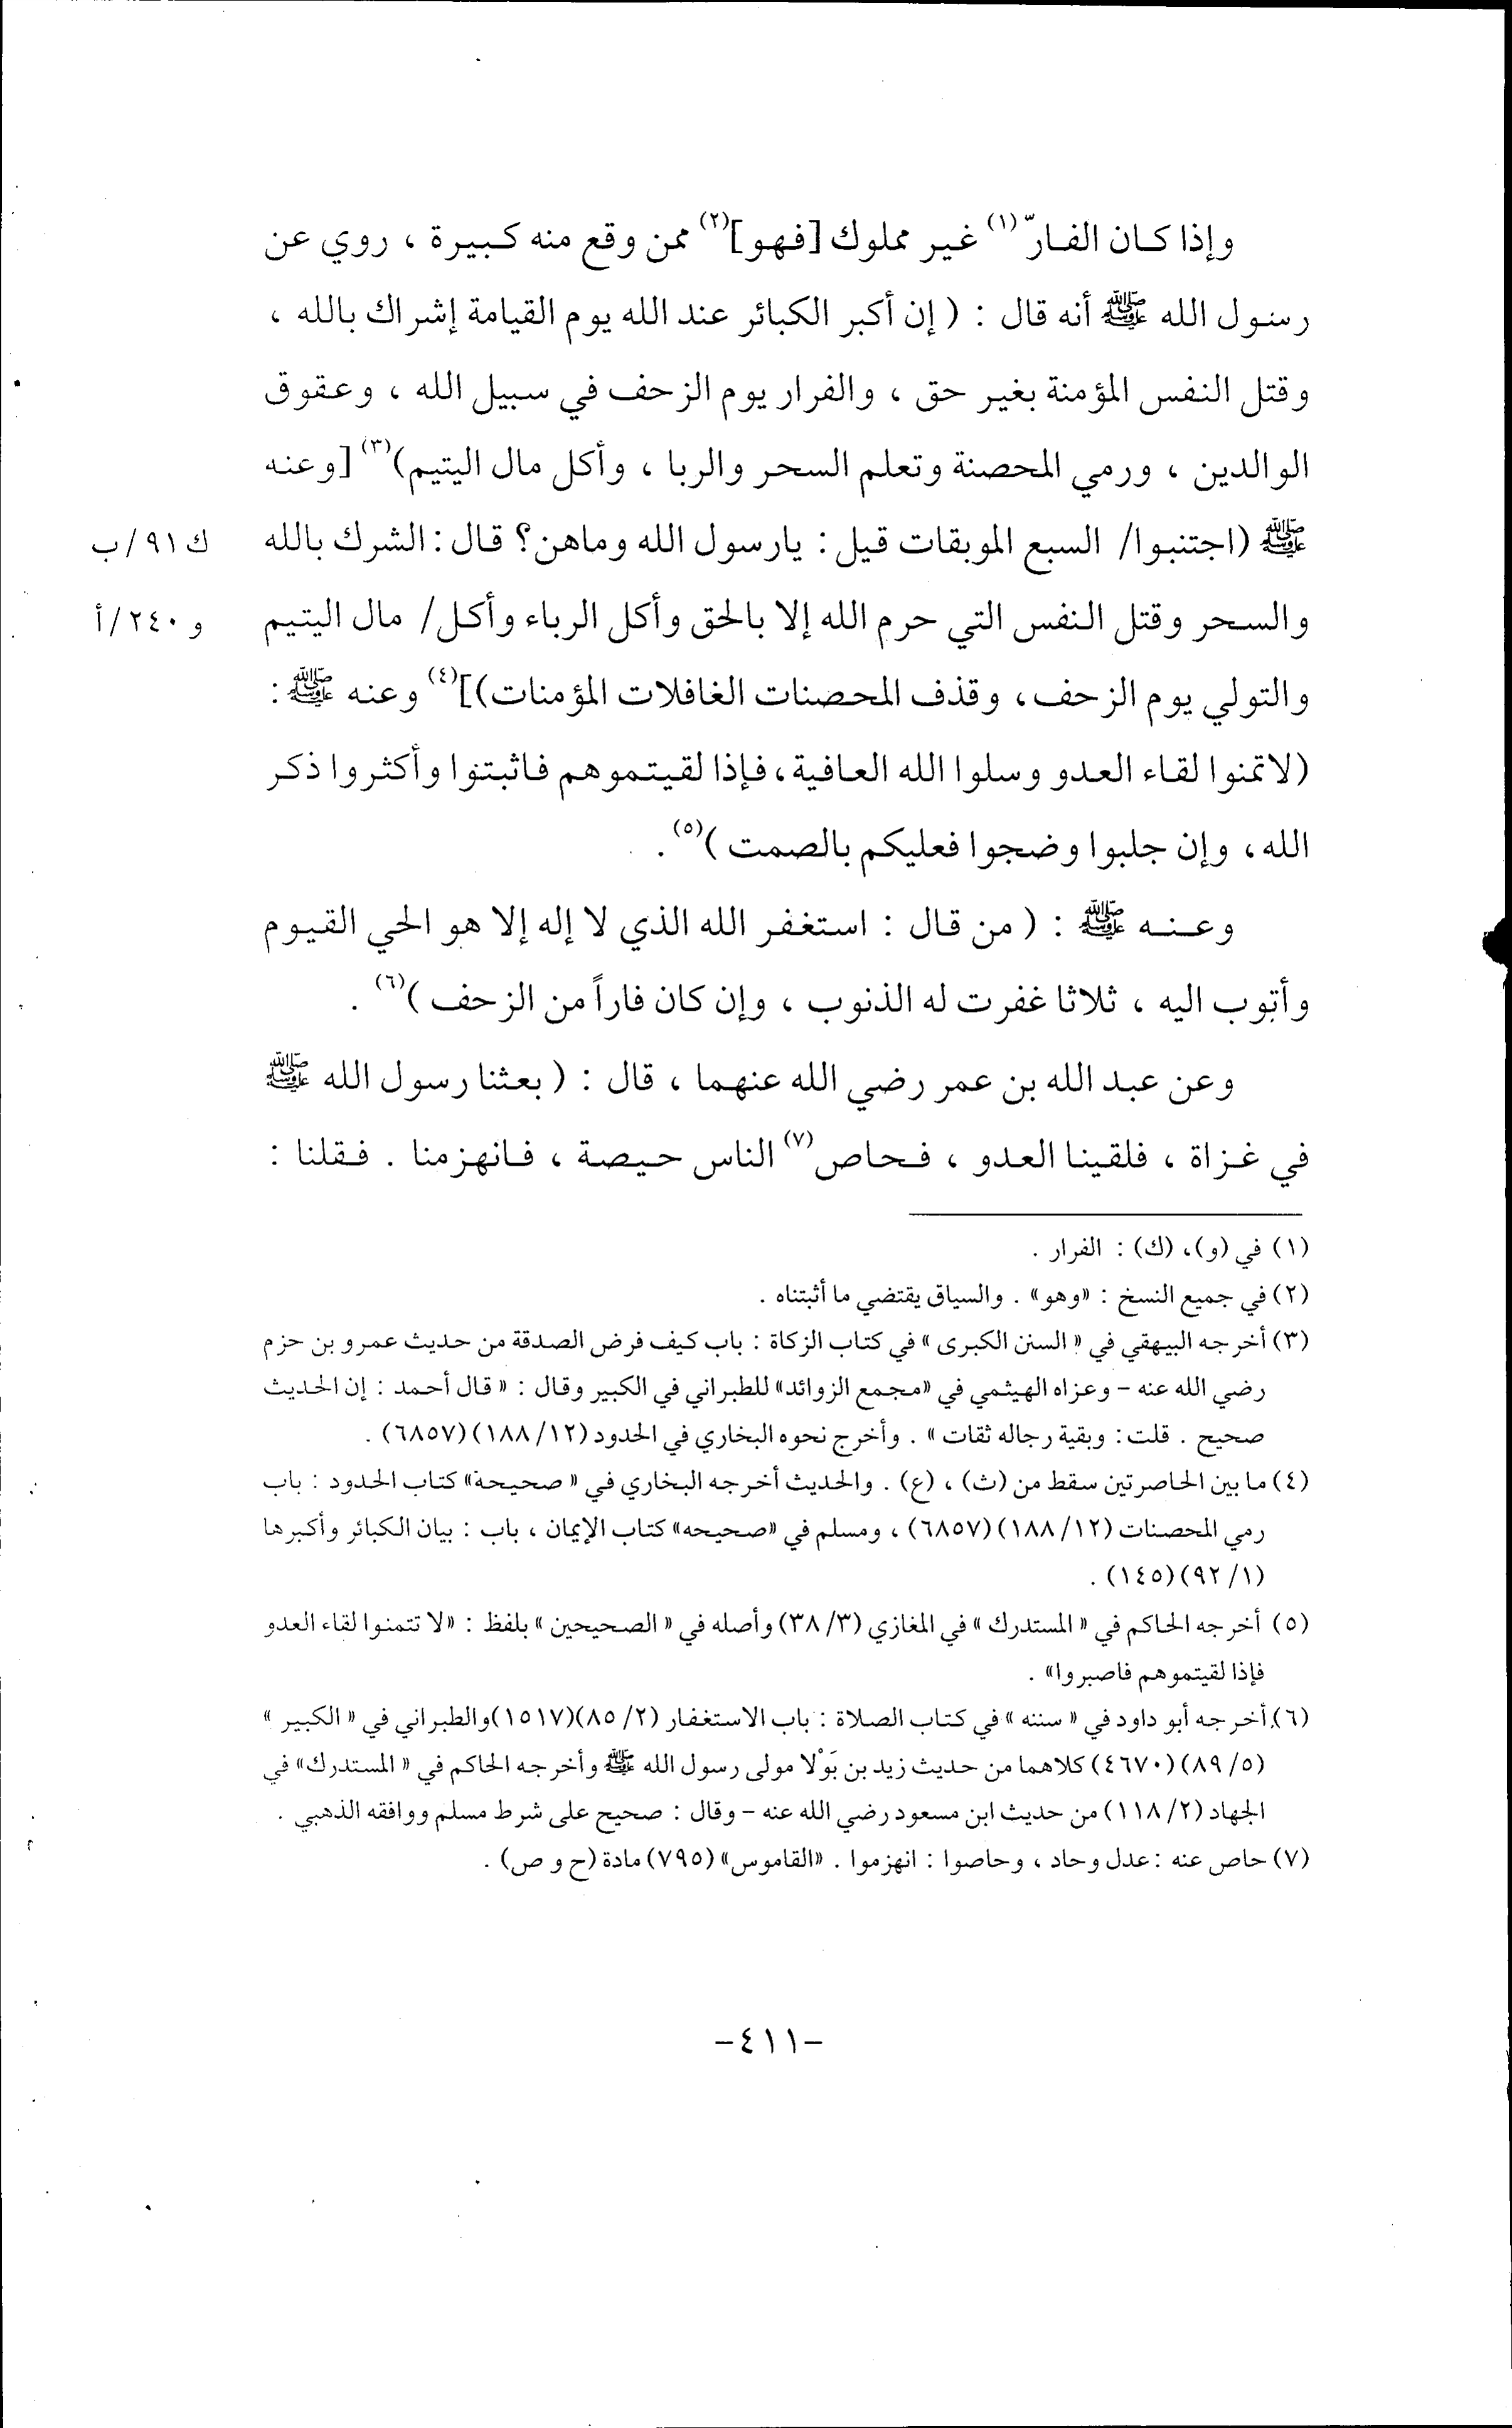 وإذا كان الفارّ(١) غير مملوك [فهو](٢) ممن وقع منه كبيرة ، روي عن
رسول الله ﷺ أنه قال : ( إن أكبر الكبائر عند الله يوم القيامة إشراك بالله ،
وقتل النفس المؤمنة بغير حق ، والفرار يوم الزحف في سبيل الله ، وعقوق
الوالدين ، ورمي المحصنة وتعلم السحر والربا ، وأكل مال اليتيم)(٣) [وعنه
ﷺ (اجتنبوا/ السبع الموبقات قيل : يارسول الله وماهن؟ قال : الشرك بالله ك ٩١/ب
والسحر وقتل النفس التي حرم الله إلا بالحق وأكل الرباء وأكل/ مال اليتيم و ٢٤٠/أ
والتولي يوم الزحف، وقذف المحصنات الغافلات المؤمنات)](٤) وعنه ﷺ :
(لاتمنوا لقاء العدو وسلوا الله العافية، فإذا لقيتموهم فاثبتوا وأكثروا ذكر
الله، وإن جلبوا وضجوا فعليكم بالصمت )(٥) .
وعنه ﷺ : ( من قال : استغفر الله الذي لا إله إلا هو الحي القيوم
وأتوب اليه ، ثلاثا غفرت له الذنوب ، وإن كان فاراً من الزحف )(٦) .
وعن عبد الله بن عمر رضي الله عنهما ، قال : ( بعثنا رسول الله ﷺ
في غزاة ، فلقينا العدو ، فحاص(٧) الناس حيصة ، فانهزمنا . فقلنا :
(١) في (و)، (ك) : الفرار .
(٢) في جميع النسخ : «وهو» . والسياق يقتضي ما أثبتناه .
(٣) أخرجه البيهقي في « السنن الكبرى » في كتاب الزكاة : باب كيف فرض الصدقة من حديث عمرو بن حزم
رضي الله عنه - وعزاه الهيثمي في «مجمع الزوائد» للطبراني في الكبير وقال : « قال أحمد : إن الحديث
صحيح . قلت : وبقية رجاله ثقات » . وأخرج نحوه البخاري في الحدود (١٨٨/١٢) (٦٨٥٧) .
(٤) ما بين الحاصرتين سقط من (ث) ، (ع) . والحديث أخرجه البخاري في « صحيحة» كتاب الحدود : باب
رمي المحصنات (١٨٨/١٢) (٦٨٥٧) ، ومسلم في «صحيحه» كتاب الإيمان ، باب : بيان الكبائر وأكبرها
(٩٢/١) (١٤٥) .
(٥) أخرجه الحاكم في « المستدرك » في المغازي (٣٨/٣) وأصله في « الصحيحين » بلفظ : «لا تتمنوا لقاء العدو
فإذا لقيتموهم فاصبروا» .
(٦) أخرجه أبو داود في « سننه » في كتاب الصلاة : باب الاستغفار (٨٥/٢)(١٥١٧) والطبراني في « الكبير »
(٨٩/٥) (٤٦٧٠) كلاهما من حديث زيد بن بَوْلا مولى رسول الله ﷺ وأخرجه الحاكم في « المستدرك» في
الجهاد (١١٨/٢) من حديث ابن مسعود رضي الله عنه - وقال : صحيح على شرط مسلم ووافقه الذهبي .
(٧) حاص عنه : عدل وحاد ، وحاصوا : انهزموا . «القاموس» (٧٩٥) مادة (ح و ص) .
-٤١١-